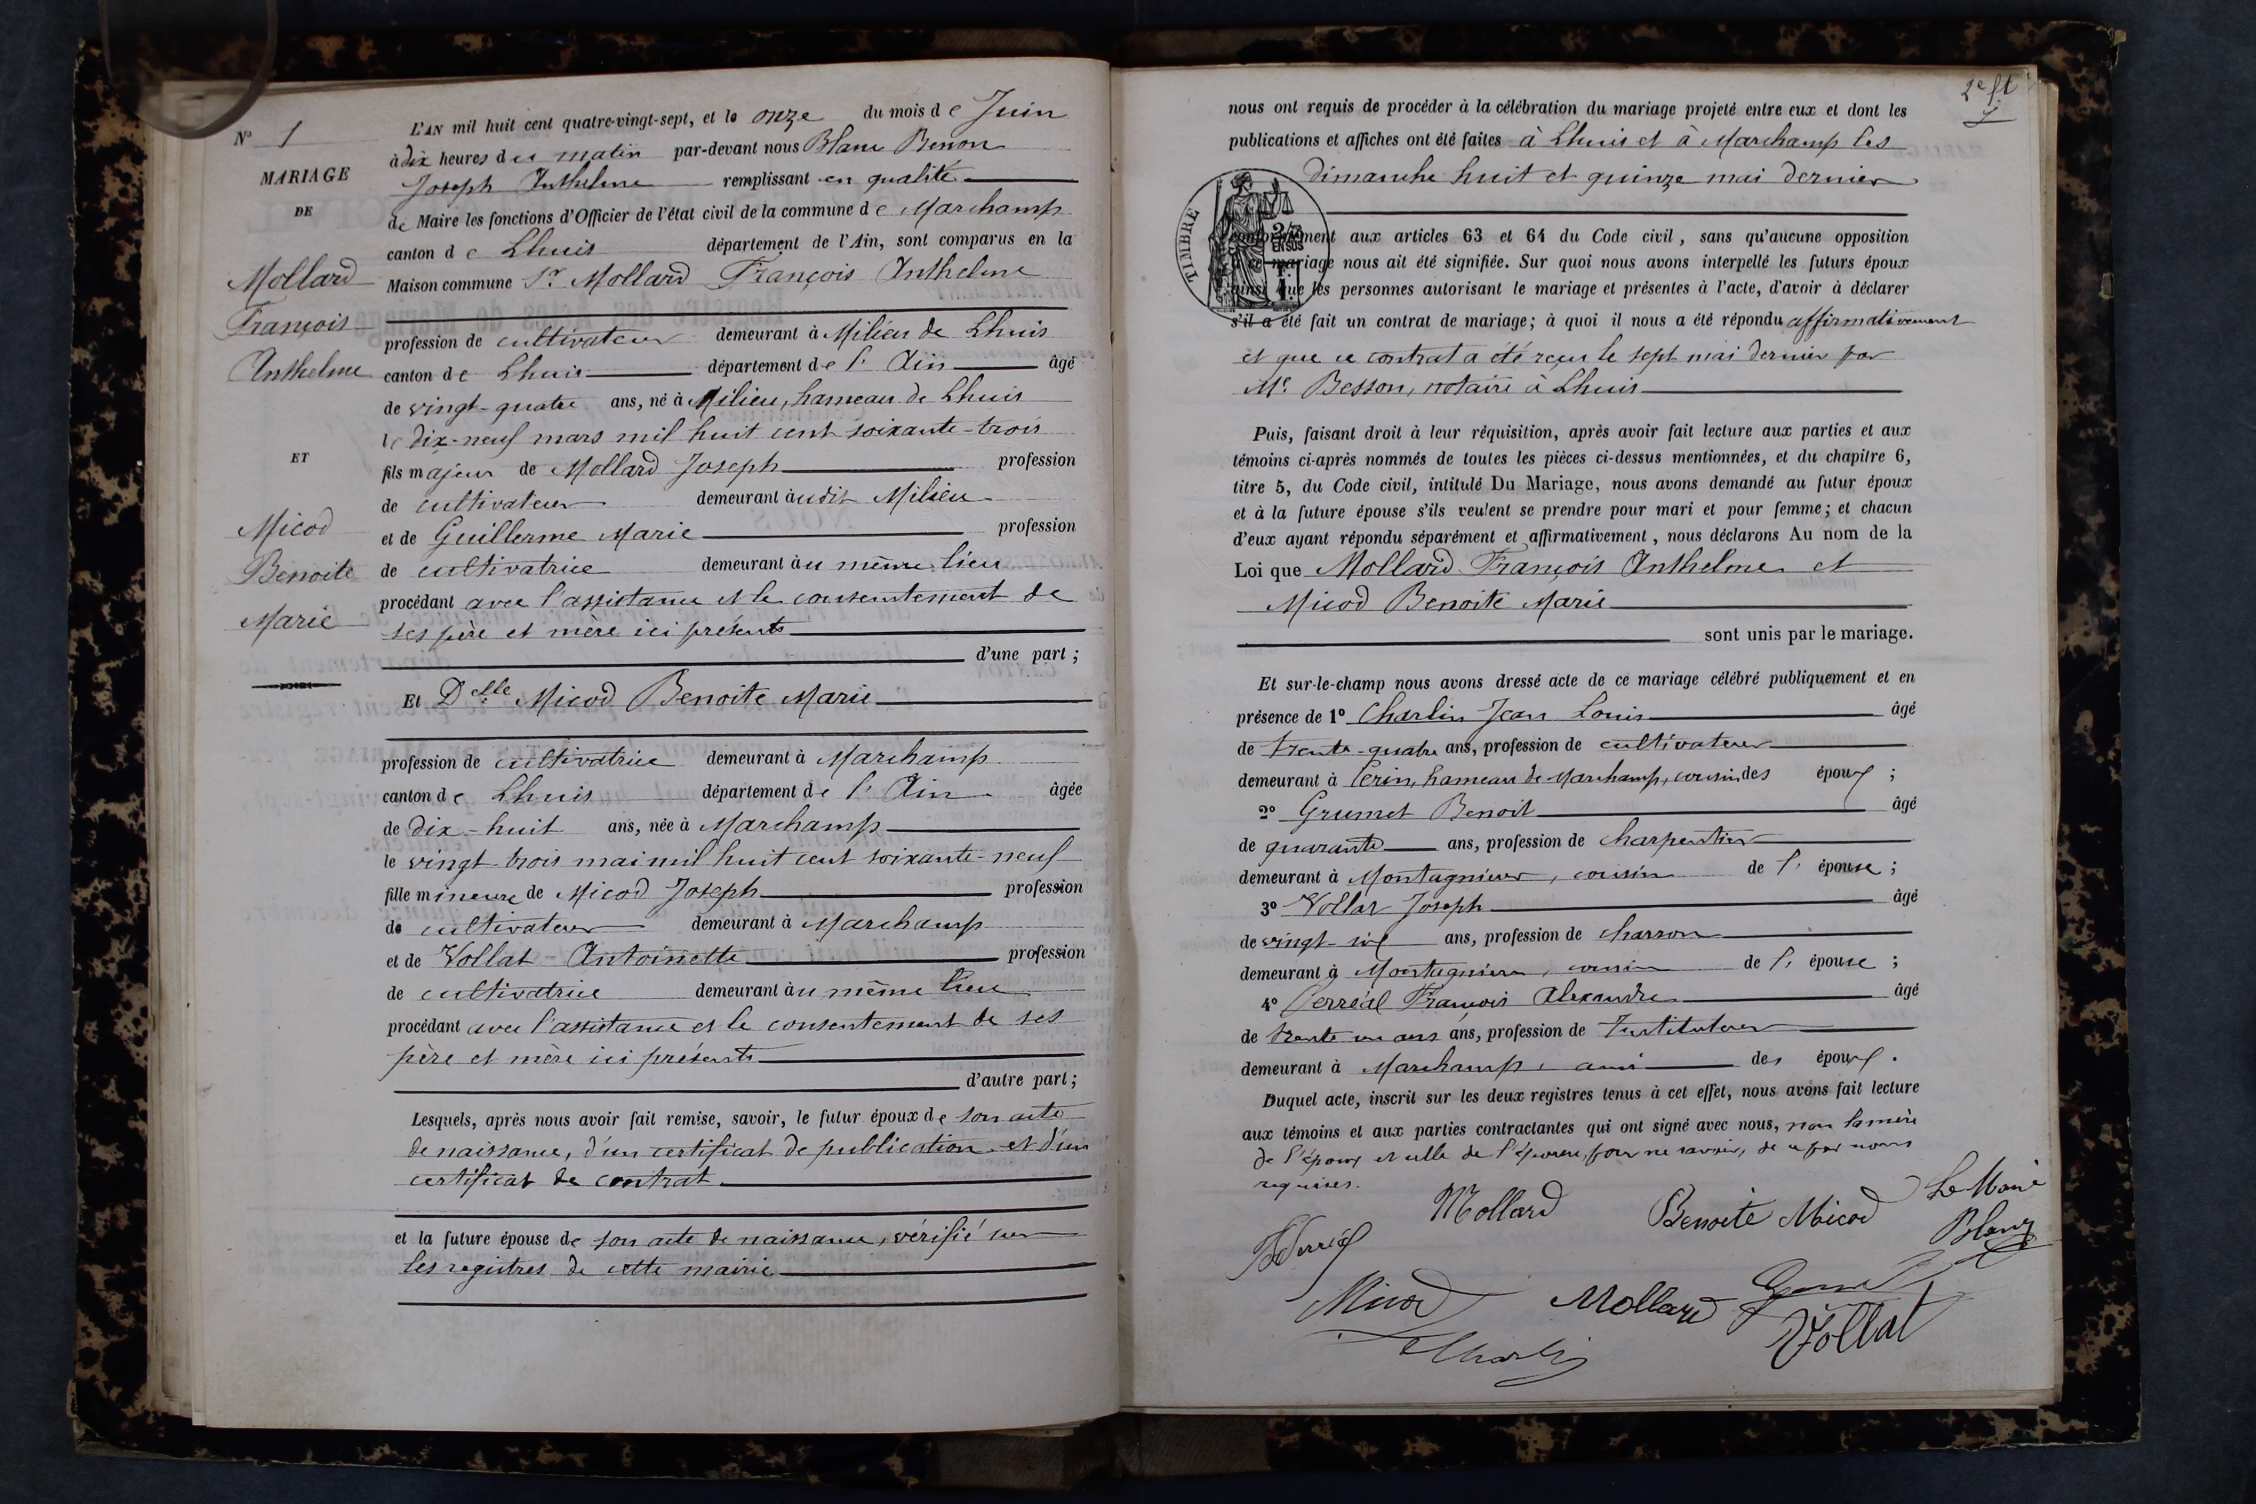 N° 1
MARIAGE
DE
Mollard
François
Anthelme
ET
Micod
Benoite
Marie
L'AN mil huit cent quatre-vingt-sept, et le onze du mois de Juin
à dix heures du matin par-devant nous Blanc Benon
Joseph Anthelme remplissant en qualité
de Maire les fonctions d'Officier de l'état civil de la commune de Marchamp
canton de Lhuis département de l'Ain, sont comparus en la
Maison commune Sr Mollard François Anthelme
profession de cultivateur demeurant à Milieu de Lhuis
canton de Lhuis département de l'Ain âgé
de vingt-quatre ans, né à Milieu, hameau de Lhuis
le dix-neuf mars mil huit cent soixante-trois
fils majeur de Mollard Joseph profession
de cultivateur demeurant audit Milieu
et de Guillerme Marie profession
de cultivatrice demeurant au même lieu
procédant avec l'assistance et le consentement de
ses père et mère ici présents
d'une part ;
Et Delle Micod Benoite Marie
profession de cultivatrice demeurant à Marchamp
canton de Lhuis département de l'Ain âgée
de dix-huit ans, née à Marchamp
le vingt trois mai mil huit cent soixante-neuf
fille mineure de Micod Joseph profession
de cultivateur demeurant à Marchamp
et de Vollat Antoinette profession
de cultivatrice demeurant au même lieu
procédant avec l'assistance et le consentement de ses
père et mère ici présents
d'autre part ;
Lesquels, après nous avoir fait remise, savoir, le futur époux de son acte
de naissance, d'un certificat de publication et d'un
certificat de contrat
et la future épouse de son acte de naissance, vérifié sur
les registres de cette mairie
2e ft
nous ont requis de procéder à la célébration du mariage projeté entre eux et dont les
publications et affiches ont été faites à Lhuis et à Marchamp les
dimanche huit et quinze mai dernier
TIMBRE
EN SUS
conformément aux articles 63 et 64 du Code civil, sans qu'aucune opposition
à ce mariage nous ait été signifiée. Sur quoi nous avons interpellé les futurs époux
ainsi que les personnes autorisant le mariage et présentes à l'acte, d'avoir à déclarer
s'il a été fait un contrat de mariage ; à quoi il nous a été répondu affirmativement
et que ce contrat a été reçu le sept mai dernier par
Me Besson, notaire à Lhuis
Puis, faisant droit à leur réquisition, après avoir fait lecture aux parties et aux
témoins ci-après nommés de toutes les pièces ci-dessus mentionnées, et du chapitre 6,
titre 5, du Code civil, intitulé Du Mariage, nous avons demandé au futur époux
et à la future épouse s'ils veulent se prendre pour mari et pour femme ; et chacun
d'eux ayant répondu séparément et affirmativement, nous déclarons Au nom de la
Loi que Mollard François Anthelme et
Micod Benoite Marie
sont unis par le mariage.
Et sur-le-champ nous avons dressé acte de ce mariage célébré publiquement et en
présence de 1° Charlin Jean Louis âgé
de trente-quatre ans, profession de cultivateur
demeurant à Cerin, hameau de Marchamp, cousin des époux ;
2° Grumet Benoit âgé
de quarante ans, profession de charpentier
demeurant à Montagnieu, cousin de l'épouse ;
3° Vollat Joseph âgé
de vingt-six ans, profession de charron
demeurant à Montagnieu, cousin de l'épouse ;
4° Perréal François Alexandre âgé
de trente un ans ans, profession de Instituteur
demeurant à Marchamp, ami des époux.
Duquel acte, inscrit sur les deux registres tenus à cet effet, nous avons fait lecture
aux témoins et aux parties contractantes qui ont signé avec nous, non la mère
de l'époux et celle de l'épouse, pour ne savoir, de ce par nous
requises.
Mollard Benoite Micod Le Maire
Blanc
Micod Mollard
Charlin Vollat